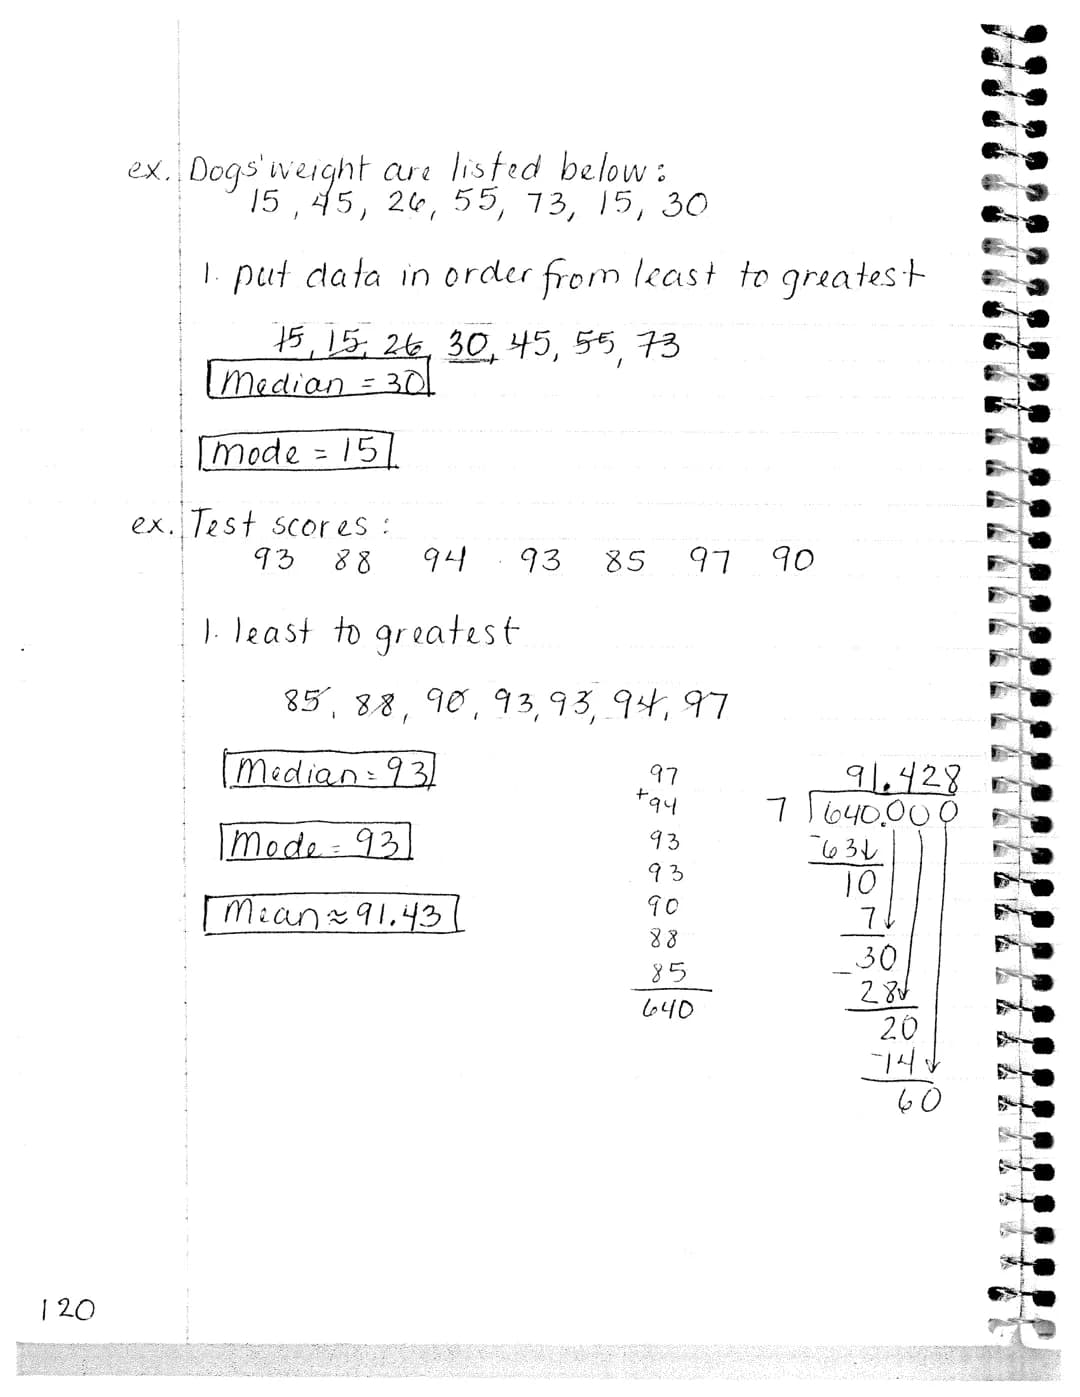 ex. Dogs' weight are listed below:
15, 45, 26, 55, 73, 15, 30
1. put data in order from least to greatest
15, 15, 26, 30, 45, 55, 73
Median = 30
Mode = 15
ex. Test scores:
93 88 94 93 85 97 90
1. least to greatest
85, 88, 90, 93, 93, 94, 97
Median = 93
Mode = 93
Mean ≈ 91.43
97
+94
93
93
90
88
85
640
91.428
7 640.000
-63
10
7
30
-28
20
-14
60
120